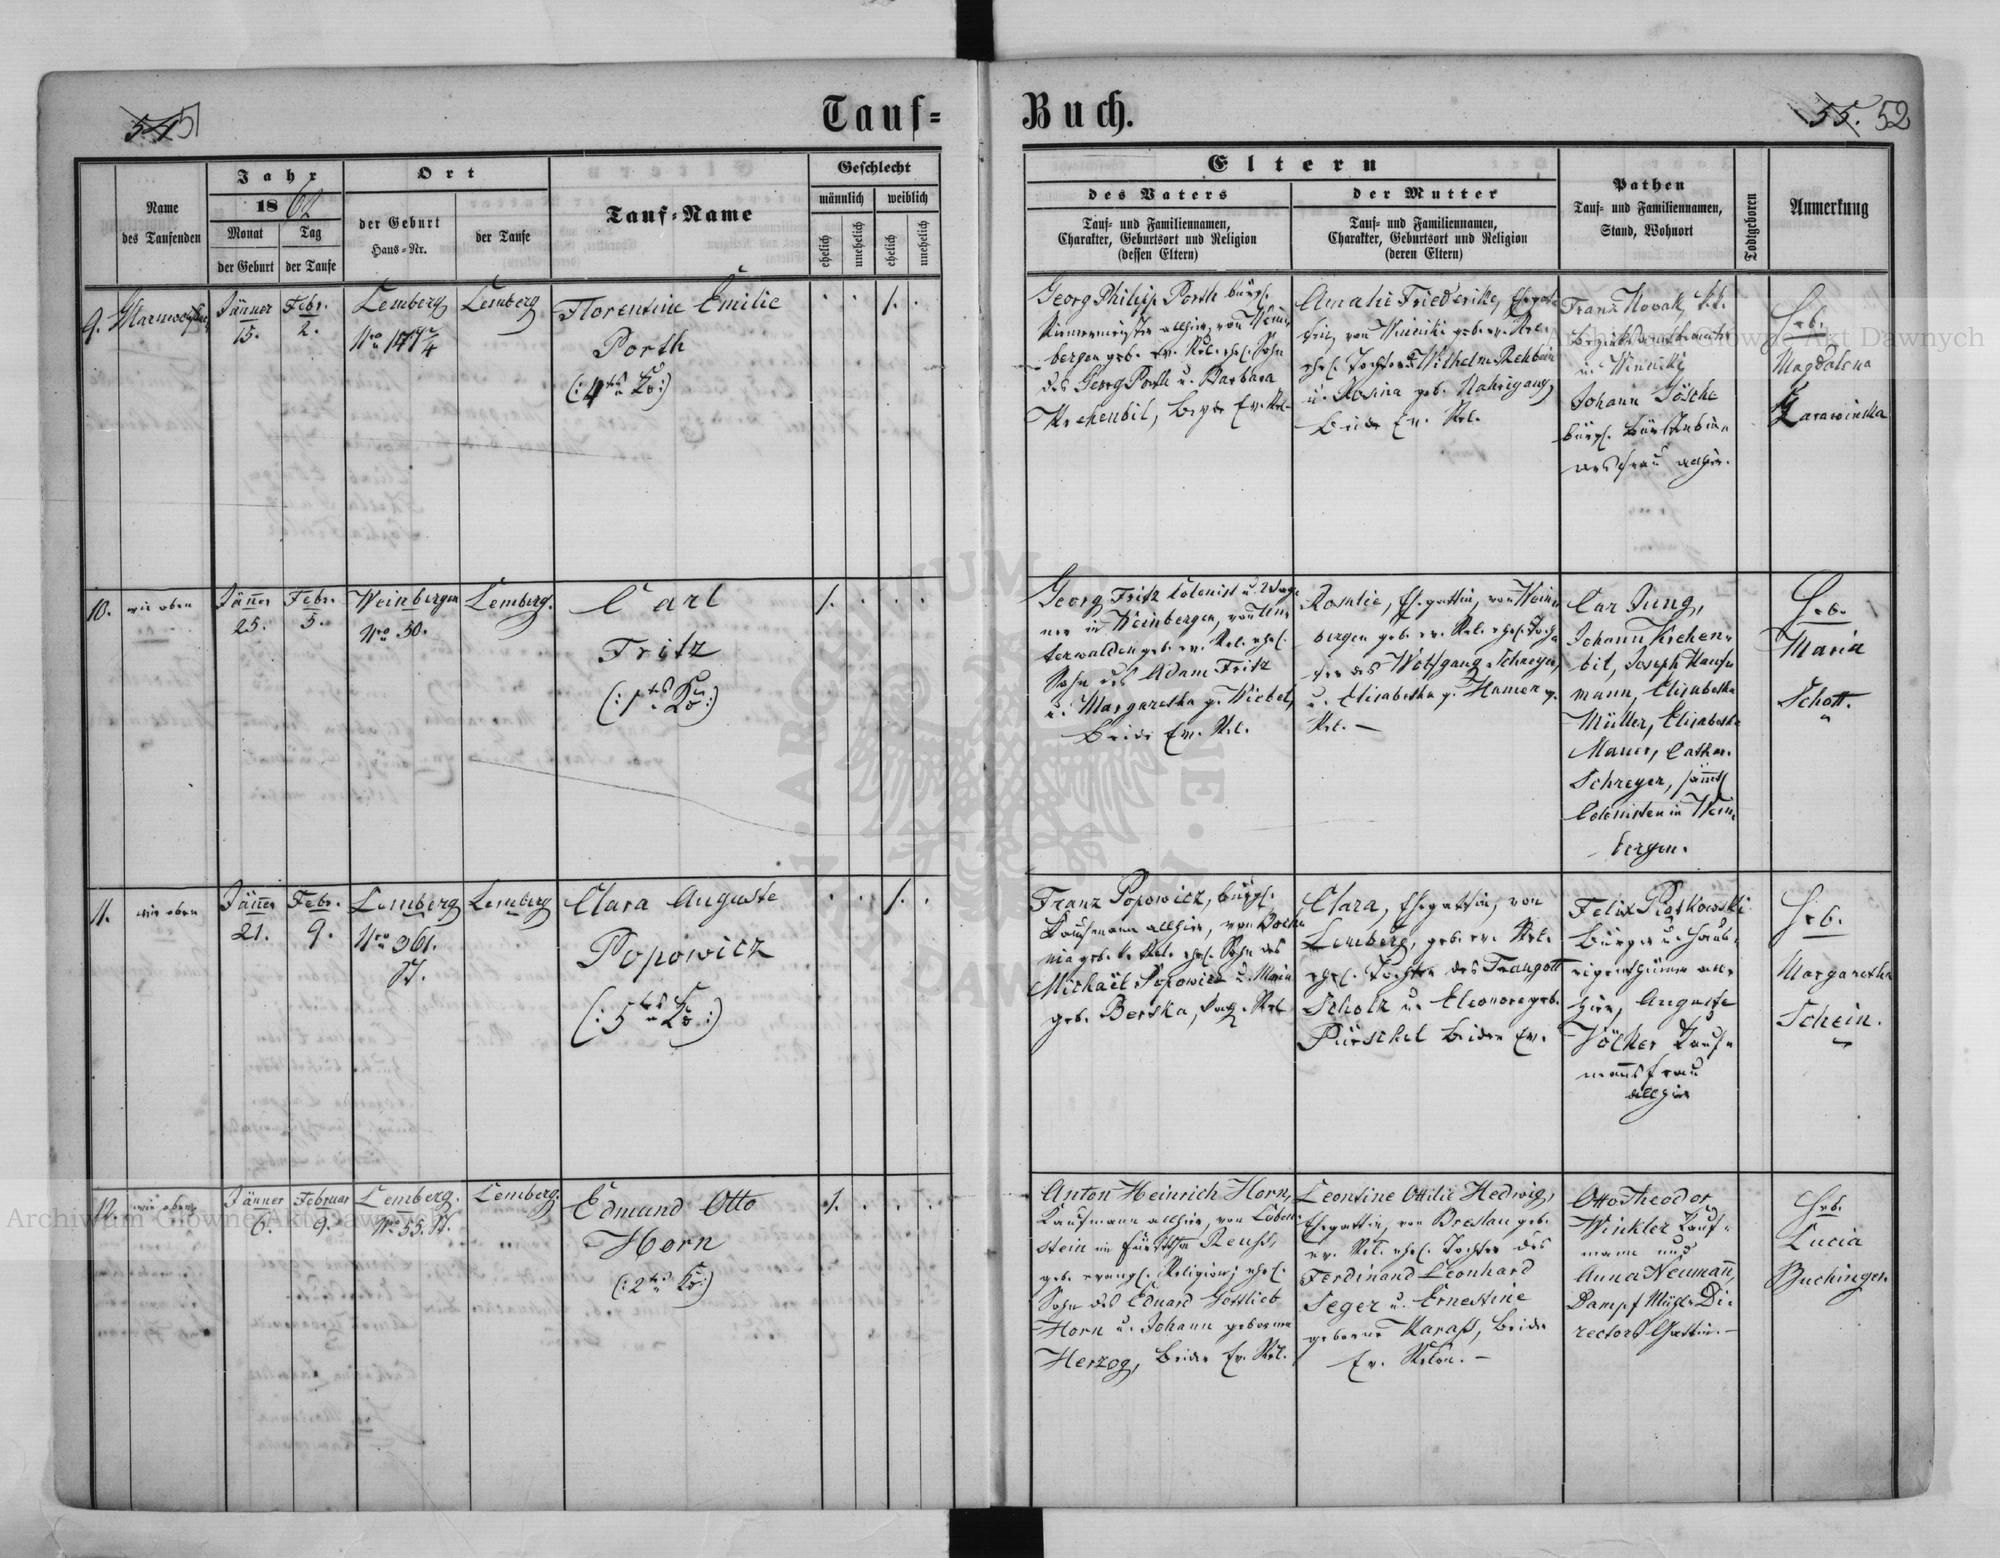 51
Tauf= Buch.
52
Name
des Taufenden
Jahr
1862
Monat
der Geburt
Tag
der Taufe
Ort
der Geburt
Haus=Nr.
der Taufe
Tauf=Name
Geschlecht
männlich
weiblich
ehelich
unehelich
ehelich
unehelich
Eltern
des Vaters
Tauf= und Familiennamen,
Charakter, Geburtsort und Religion
(dessen Eltern)
der Mutter
Tauf= und Familiennamen,
Charakter, Geburtsort und Religion
(deren Eltern)
Pathen
Tauf= und Familiennamen,
Stand, Wohnort
Todtgeboren
Anmerkung
9.
Jänner
15.
Febr.
2.
Lemberg
Lemberg
Florentine Emilie
Porth
(: 4tes Ko :)
Georg Philipp Porth bürgl.
allhier, von Wein
bergen geb. ev. Rel. ehel. Sohn
des Georg Porth u. Barbara
Krehenbil, beyde Ev. Rel.
Amalie Friederike, Ehegat
tin, von Winniki geb. ev. Rel.
ehel. Tochter d. Wilhelm Rehbein
u. Rosina geb. Nahrgang,
beide Ev. Rel.
Franz Nowak, k.k.
Bezirksamtsbeamter
u. Winniki
Johann Jöschke
bürgl. Bürstenbin
allhier.
Heb.
Magdalena
10.
wie oben
Jänner
25.
Febr.
5.
Weinbergen
Nro 50.
Lemberg.
Carl
Fritz
(: 1tes Ko :)
Georg Fritz Colonist u.
ner in Weinbergen, von Un
terwalden geb. ev. Rel. ehel.
Sohn des Adam Fritz
u. Margaretha g. Wiebel,
beide Ev. Rel.
Rosalie, Ehegattin, von Wein
bergen geb. ev. Rel. ehel. Toch
ter des Wolfgang Schreyer,
u. Elisabetha g. Hamer
Rel. —
Carl Jung,
Johann Krehen=
bil, Joseph Hauf
mann, Elisabetha
Müller, Elisabetha
Mauer, Cathar.
Schreyer, sämtl
Colonisten in Wein
bergen.
Heb.
Maria
Schott.
11.
wie oben
Jänner
21.
Febr.
9.
Lemberg
Nro 361.
Lemberg
Clara Auguste
Popowicz
(: 5tes Ko :)
Franz Popowicz, bürgl.
Kaufmann allhier, von Boch
nia geb. k. Rel. ehel. Sohn des
Michael Popowicz u. Maria
geb. Berska, Rel.
Clara, Ehegattin, von
Lemberg, geb. ev. Rel.
ehel. Tochter des Traugott
Scholz u. Eleonore geb.
Pürschel beide Ev.
Felix Piątkowski
Bürger u. Haus=
eigenthümer all=
hier, Auguste
Völker Kauf=
mannsfrau
allhier
Heb.
Margaretha
Schein.
12.
wie oben
Jänner
6.
Februar
9.
Lemberg.
Nro 55.
Lemberg.
Edmund Otto
Horn
(: 2tes Ko :)
Anton Heinrich Horn,
Kaufmann allhier, von Loben
stein im Reuss,
geb. evangl. Religion, ehel.
Sohn des Eduard Gottlieb
Horn u. Johann geborne
Herzog, beide Ev. Rel.
Leontine Ottilie Hedwig,
Ehegattin, von Breslau geb.
ev. Rel. ehel. Tochter des
Ferdinand Leonhard
Seger u. Ernestine
geborne Karass, beide
Ev. Relon. —
Otto Theodor
Winkler Kauf=
mann und
Anna Neumann,
Dampf Mühl=Di=
rectors Gattin. —
Heb.
Lucia
Buchinger
Archiwum Główne Akt Dawnych
Archiwum Główne Akt Dawnych
ARCHIWUM GŁÓWNE AKT DAWNYCH